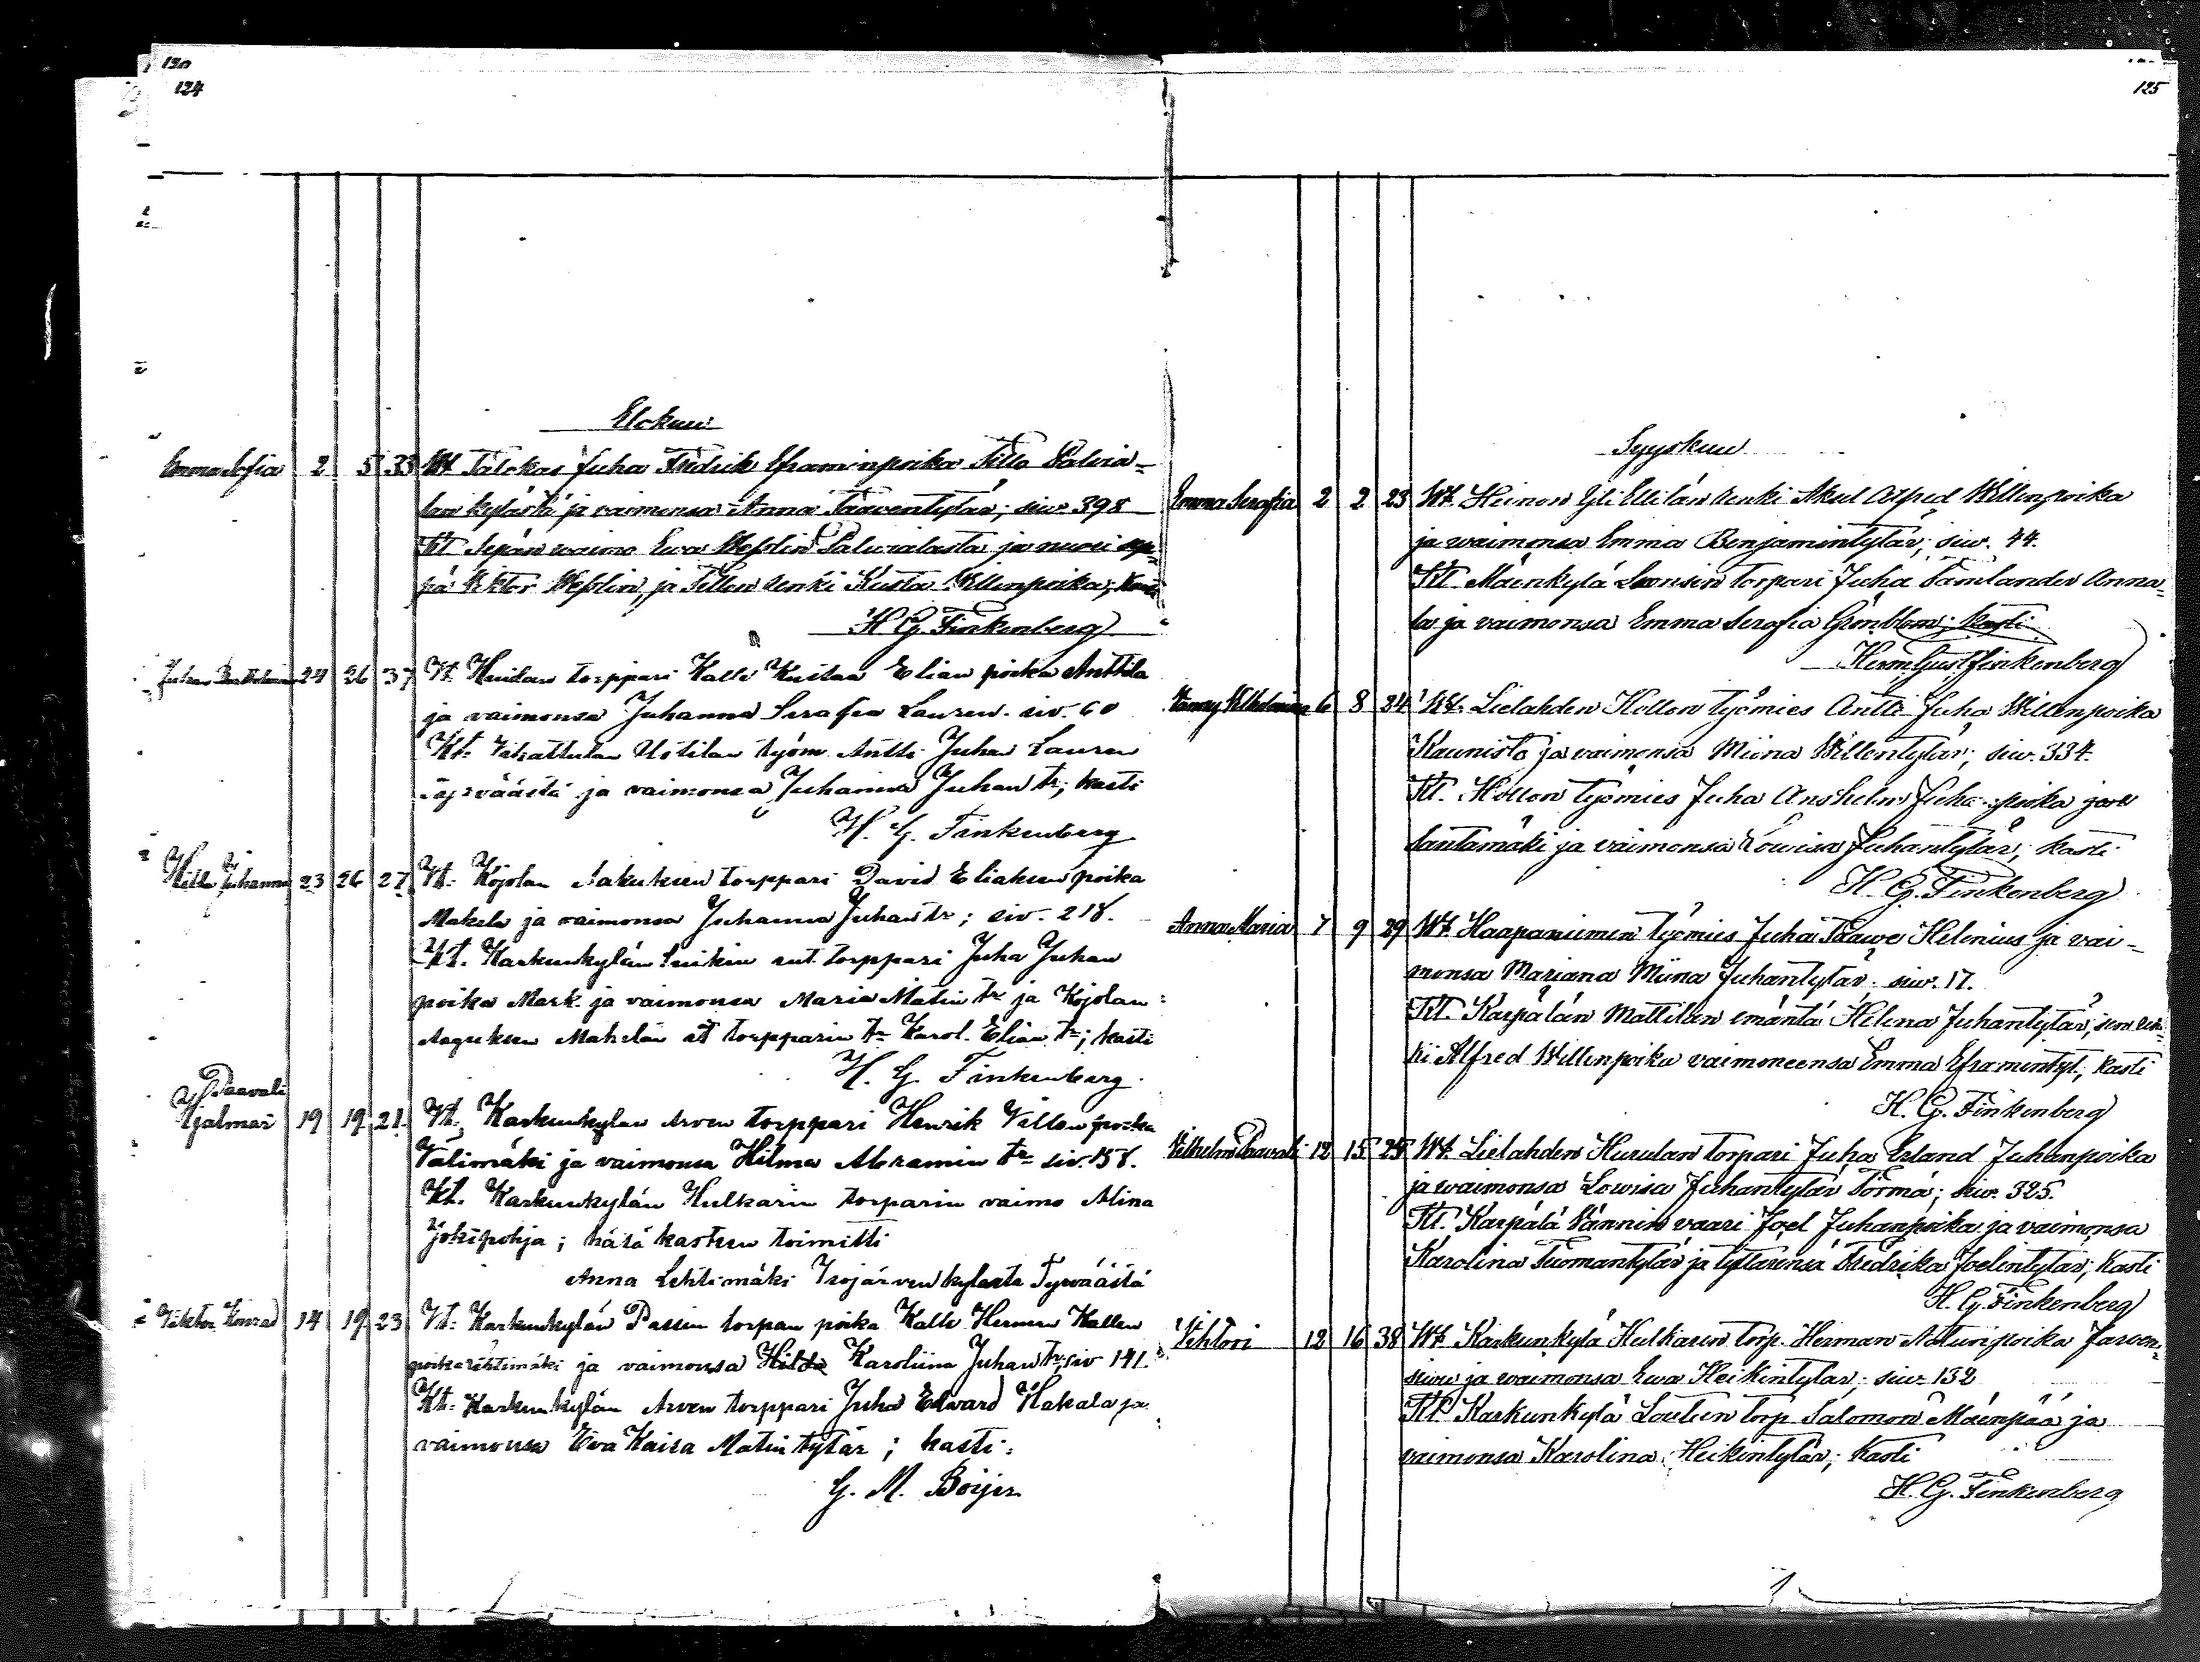 130
124
Elokuu
Emma Sofia 2 5 33 Wt Talokas Juha Fredrik Eframinpoika Tillo Salvia=
lan kylästä ja vaimonsa Anna Taaventytär; siv. 398
Kt Sepän vaimo Ewa Weslin Salvialasta ja nuori sep=
pä Viktor Weslin, ja Tillon renki Kusta Willenpoika; kasti
H G. Finkenberg
Juhan 24 26 37 Vt. Huidan torppari Kalle Kustaa Elian poika Anttila
ja vaimonsa Juhanna Serafia Lauren. siv. 60
Kt. Vihattulan Uotilan työm. Antti Juhan Lauren
Tyrväästä ja vaimonsa Juhanna Juhan tr; kasti
H. G. Finkenberg
Hilda Juhanna 23 26 27 Vt. Kojolan Aakuksen torppari David Eliaksen poika
Makela ja vaimonsa Juhanna Juhan tr; siv. 218.
Kt. Karkunkylän ent. torppari Juha Juhan
poika Mark. ja vaimonsa Maria Matin tr ja Kojolan
Aaguksen Makelän torpparin tr Karol. Elian tr; kasti
H. G. Finkenberg.
Paavali
Hjalmar 19 19 21 Vt. Karkunkylan Arven torppari Henrik Villen poika
Välimäki ja vaimonsa Hilma Abramin tr siv. 158.
Kt. Karkunkylän Hulkarin torparin vaimo Alina
Jokipohja; hätä kasteen toimitti
Anna Lehtimäki Isojärven kylasta Tyrväästä
Viktor Konrad 14 19 23 Vt. Karkunkylän Passin torpan poika Kalle Herman Kallen
poika ja vaimonsa Hilda Karoliina Juhan tr, siv 141.
Kt. Karkunkylän Arven torppari Juha Edvard Hakala ja
vaimonsa Eva Kaisa Matin tytär; kasti:
G. M. Boijer
125
Syyskuu
Emma Serafia 2 2 23 Wt. Heinon Yli Ellilän renki Akel Alfred Willenpoika
ja vaimonsa Emma Benjamintytär; siv. 44.
Kt. Mäenkylä torpari Juha Tamlander Anna=
la ja vaimonsa Emma Serafia Grönblom; kasti
Herm Gust Finkenberg
Fanny Vilhelmina 6 8 34 Wt. Lielahden Hollon työmies Antti Juha Willenpoika
Kaunisto ja vaimonsa Miina Willentytär; siv. 334.
Kt. Hollon työmies Juha Anshelm Juha poika
Santamäki ja vaimonsa Lowisa Juhantytär; kasti
H. G. Finkenberg
Anna Maria 7 9 29 Wt. Haapaniemen työmies Juha Taawe Helenius ja vai=
monsa Mariana Miina Juhantytär. siv. 17.
Kt. Karpälän Mattilan emäntä Helena Juhantytär,
Alfred Willenpoika vaimoneensa Emma Eframintyt.; kasti
H. G. Finkenberg
Vilhelm Paavali 12 15 25 Wt. Lielahden Hurulan torpari Juha Erland Juhanpoika
ja vaimonsa Lowisa Juhantytär Törmä; siv. 325.
Kt. Karpälä Wännin vaari Joel Juhanpoika ja vaimonsa
Karolina Tuomantytär ja tyttärensä Fredrika Joelintytär; kasti
H. G. Finkenberg
Vihtori 12 16 38 Wt. Karkunkylä Hulkarin torp. Herman Anturipoika Jarven=
ja vaimonsa Ewa Heikintytär; siv. 132
Kt. Karkunkylä torp. Salomon Mäenpää ja
vaimonsa Karolina Heikintytär; kasti
H. G. Finkenberg